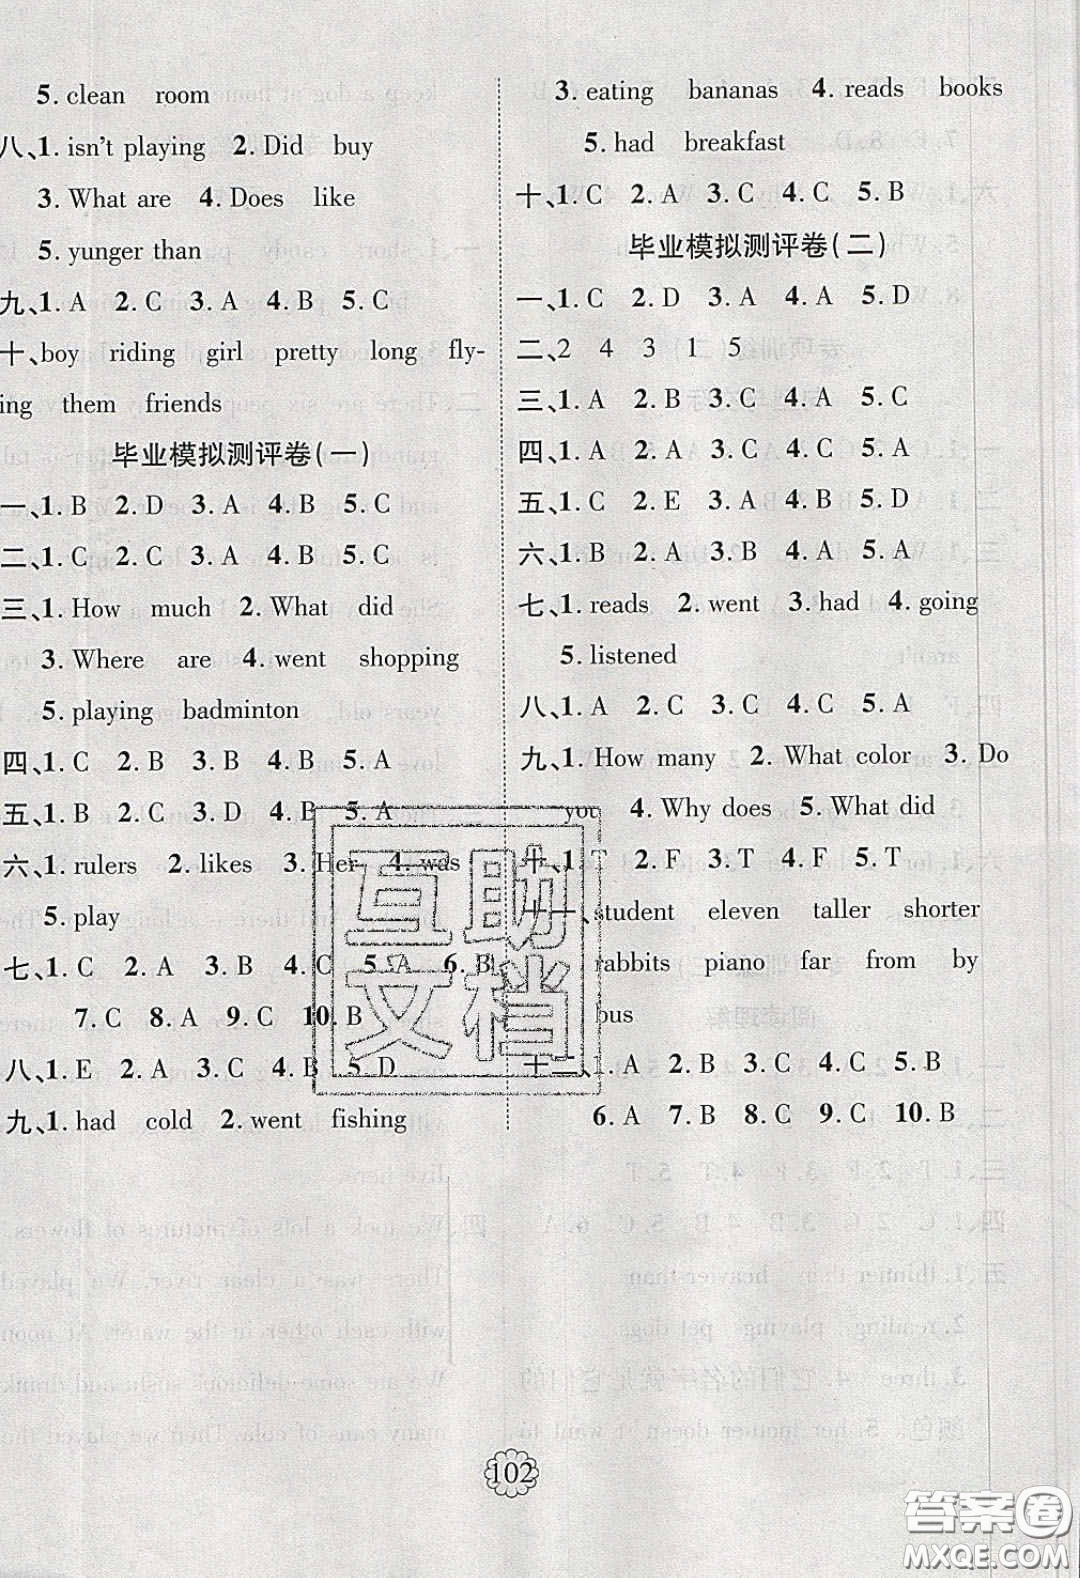 5. clean room
八、1. isn't playing 2. Did buy
3. What are 4. Does like
5. yunger than
九、1. A 2. C 3. A 4. B 5. C
十、boy riding girl pretty long fly-
ing them friends
毕业模拟测评卷(一)
一、1. B 2. D 3. A 4. B 5. C
二、1. C 2. C 3. A 4. B 5. C
三、1. How much 2. What did
3. Where are 4. went shopping
5. playing badminton
四、1. C 2. B 3. B 4. B 5. A
五、1. B 2. C 3. D 4. B 5. A
六、1. rulers 2. likes 3. Her 4. was
5. play
七、1. C 2. A 3. B 4. C 5. A 6. B
7. C 8. A 9. C 10. B
八、1. E 2. A 3. C 4. B 5. D
九、1. had cold 2. went fishing
3. eating bananas 4. reads books
5. had breakfast
十、1. C 2. A 3. C 4. C 5. B
毕业模拟测评卷(二)
一、1. C 2. D 3. A 4. A 5. D
二、2 4 3 1 5
三、1. A 2. B 3. C 4. A 5. C
四、1. A 2. A 3. C 4. A 5. A
五、1. C 2. E 3. A 4. B 5. D
六、1. B 2. A 3. B 4. A 5. A
七、1. reads 2. went 3. had 4. going
5. listened
八、1. A 2. C 3. C 4. C 5. A
九、1. How many 2. What color 3. Do
you 4. Why does 5. What did
十、1. T 2. F 3. T 4. F 5. T
十一、student eleven taller shorter
rabbits piano far from by
bus
十二、1. A 2. B 3. C 4. C 5. B
6. A 7. B 8. C 9. C 10. B
互助
文档
102
答案圈
MXQE.COM